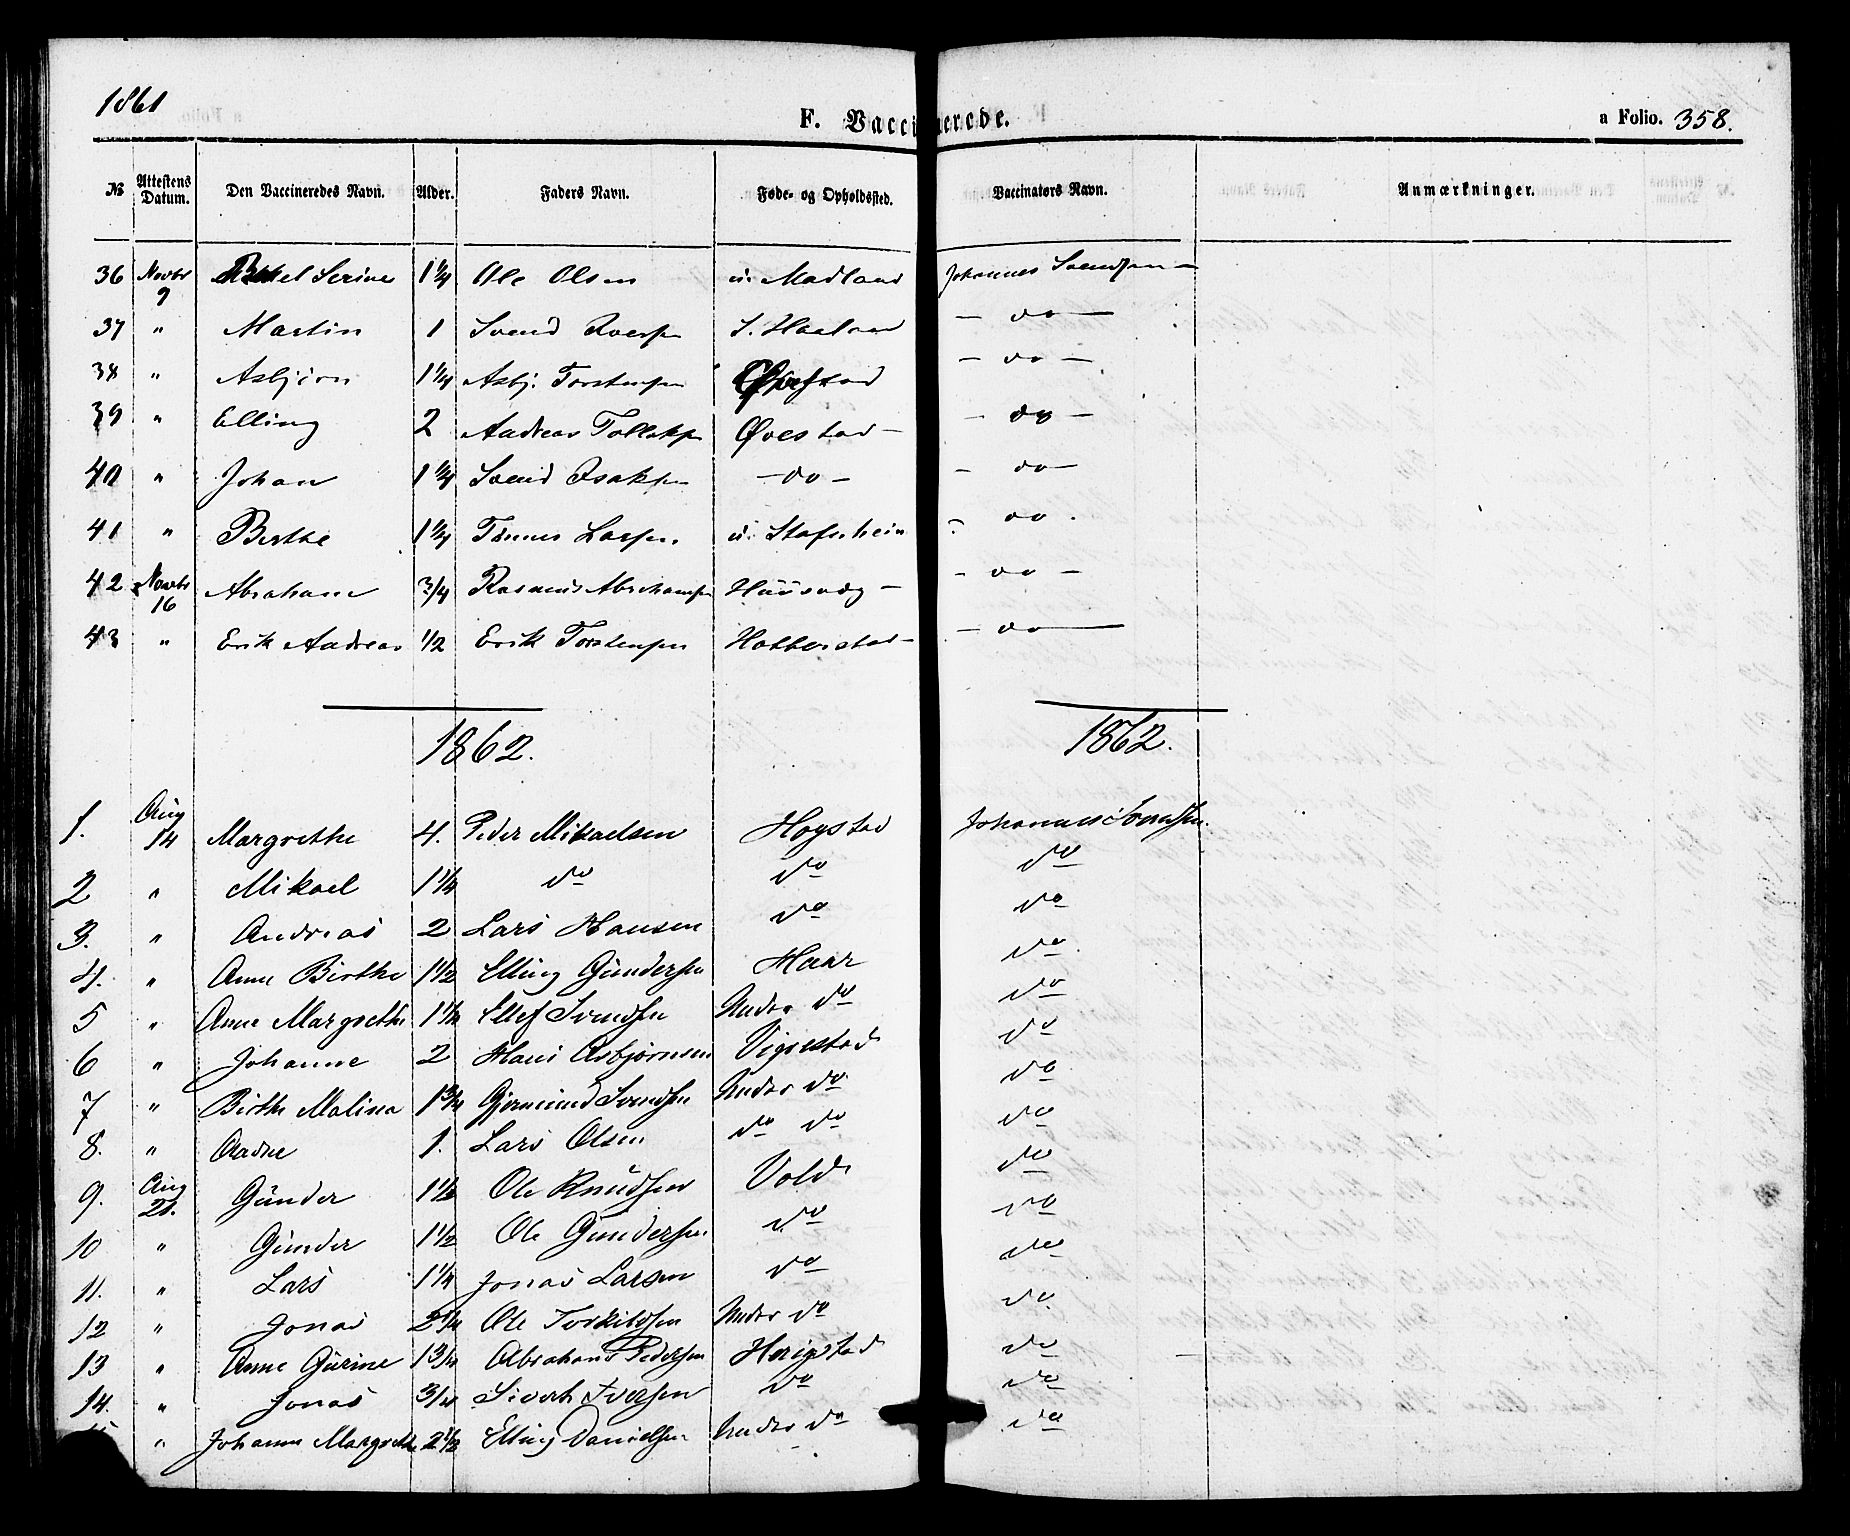 1861
F. Vaccinerede.
a Folio. 358.
№ Attestens Datum. Den Vaccineredes Navn. Alder. Faders Navn. Føde- og Opholdssted. Vaccinators Navn. Anmærkninger.
36 Novbr 9 Serine 1 1/4 Ole Olsen u. Madland Johannes Svendsen —
37 " Martin 1 Svend Iversen S. Haaland — do —
38 " Asbjörn 1 1/4 Asbj. Torstensen — do —
39 " Elling 2 Andreas Tollaksen Qvestad — — do —
40 " Johan 1 1/4 Svend Isaksen — do — — do —
41 " Berthe 1 1/4 Tønnes Larsen u. do.
42 Novbr 16 Abraham 3/4 Rasmus Abrahamsen — — do —
43 " Erik Andreas 1/2 Erik Torstensen Hobberstad — — do —
1862. 1862.
1. Aug 14 Margrethe 4. Peder Mikaelsen Hogstad Johannes Svendsen.
2 " Mikael 1 1/4 do do do
3. " Andreas 2 Lars Hansen do do
4. " Anne Birthe 1 1/2 Elling Gundersen Haar do.
5 " Anne Margrethe 1 1/4 Ellef Svendsen Under do do
6 " Johanne 2 Hans Asbjørnsen Vigrestad do
7 " Birthe Malina 1 3/4 Gjermund Svendsen Under do do
8. " Aadne 1. Lars Olsen do do do
9. Aug 21. Gunder 1 1/2 Ole Knudsen Vold do
10 " Gunder 1 1/2 Ole Gundersen do do
11. " Lars 1 1/4 Jonas Larsen do do
12 " Jonas 2 1/4 Ole Torkildsen Under do do.
13 " Anne Gurine 1 3/4 Abraham Pedersen Herigstad do
14. " Jonas 3/4 Sivert Iversen do do
" Johanne Margrethe 2 1/2 Elling Danielsen Under do do